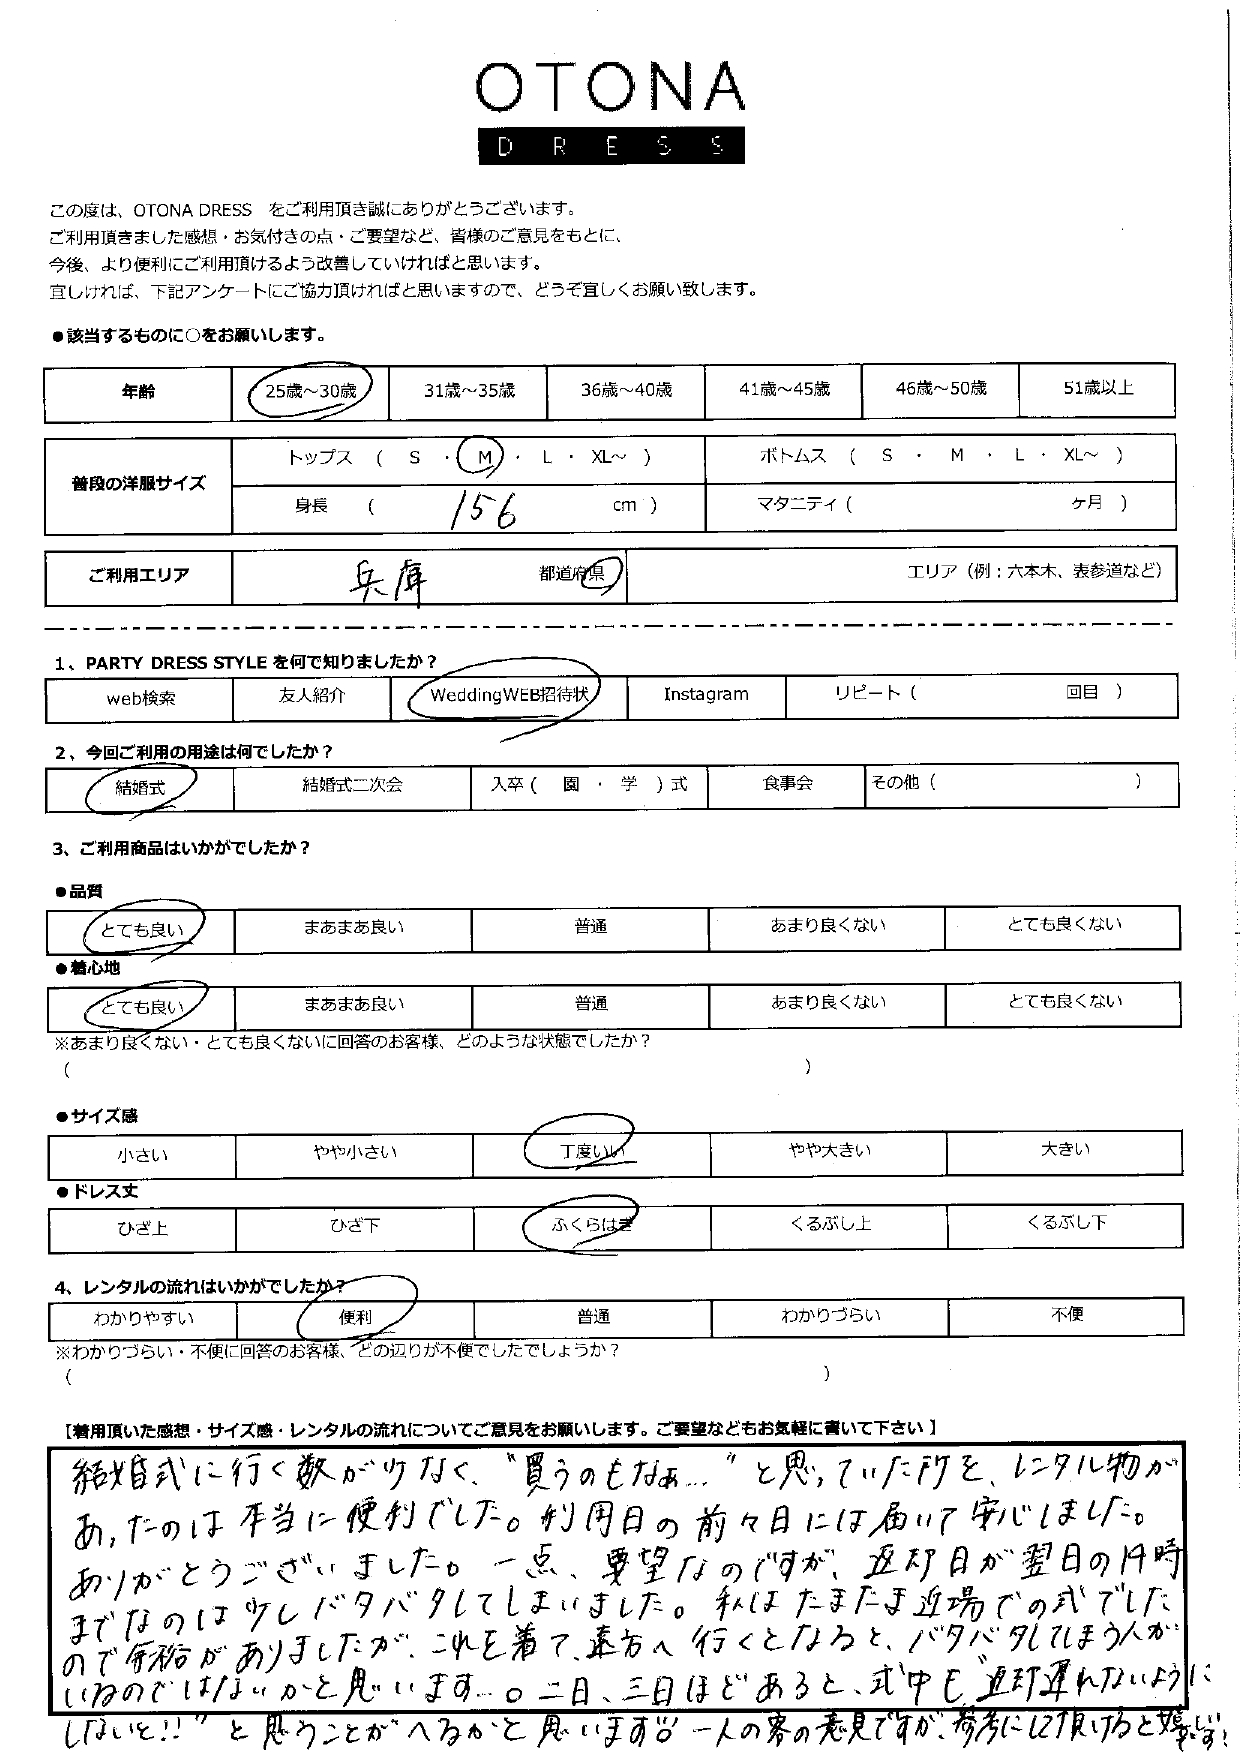 OTONA
DRESS
この度は、OTONA DRESS　をご利用頂き誠にありがとうございます。
ご利用頂きました感想・お気付きの点・ご要望など、皆様のご意見をもとに、
今後、より便利にご利用頂けるよう改善していければと思います。
宜しければ、下記アンケートにご協力頂ければと思いますので、どうぞ宜しくお願い致します。
●該当するものに○をお願いします。
年齢 25歳～30歳 31歳～35歳 36歳～40歳 41歳～45歳 46歳～50歳 51歳以上
普段の洋服サイズ トップス （ S ・ M ・ L ・ XL～ ） ボトムス （ S ・ M ・ L ・ XL～ ）
身長 （ 156 cm ） マタニティ（ ヶ月 ）
ご利用エリア 兵庫 都道府県 エリア（例：六本木、表参道など）
1、PARTY DRESS STYLE を何で知りましたか？
web検索 友人紹介 WeddingWEB招待状 Instagram リピート（ 回目 ）
2、今回ご利用の用途は何でしたか？
結婚式 結婚式二次会 入卒（ 園 ・ 学 ）式 食事会 その他（ ）
3、ご利用商品はいかがでしたか？
●品質
とても良い まあまあ良い 普通 あまり良くない とても良くない
●着心地
とても良い まあまあ良い 普通 あまり良くない とても良くない
※あまり良くない・とても良くないに回答のお客様、どのような状態でしたか？
（ ）
●サイズ感
小さい やや小さい 丁度いい やや大きい 大きい
●ドレス丈
ひざ上 ひざ下 ふくらはぎ くるぶし上 くるぶし下
4、レンタルの流れはいかがでしたか？
わかりやすい 便利 普通 わかりづらい 不便
※わかりづらい・不便に回答のお客様、どの辺りが不便でしたでしょうか？
（ ）
【着用頂いた感想・サイズ感・レンタルの流れについてご意見をお願いします。ご要望などもお気軽に書いて下さい 】
結婚式に行く数が少なく、"買うのもなぁ…"と思っていた所を、レンタル物が
あったのは本当に便利でした。利用日の前々日には届いて安心しました。
ありがとうございました。一点、要望なのですが、返却日が翌日の14時
までなのは少しバタバタしてしまいました。私はたまたま近場での式でした
ので余裕がありましたが、これを着て、遠方へ行くとなると、バタバタしてしまう人が
いるのではないかと思います…。二日、三日ほどあると、式中も"返却遅れないように
しないと!!"と思うことがへるかと思います。一人の客の意見ですが、参考にして頂けると嬉しいです！